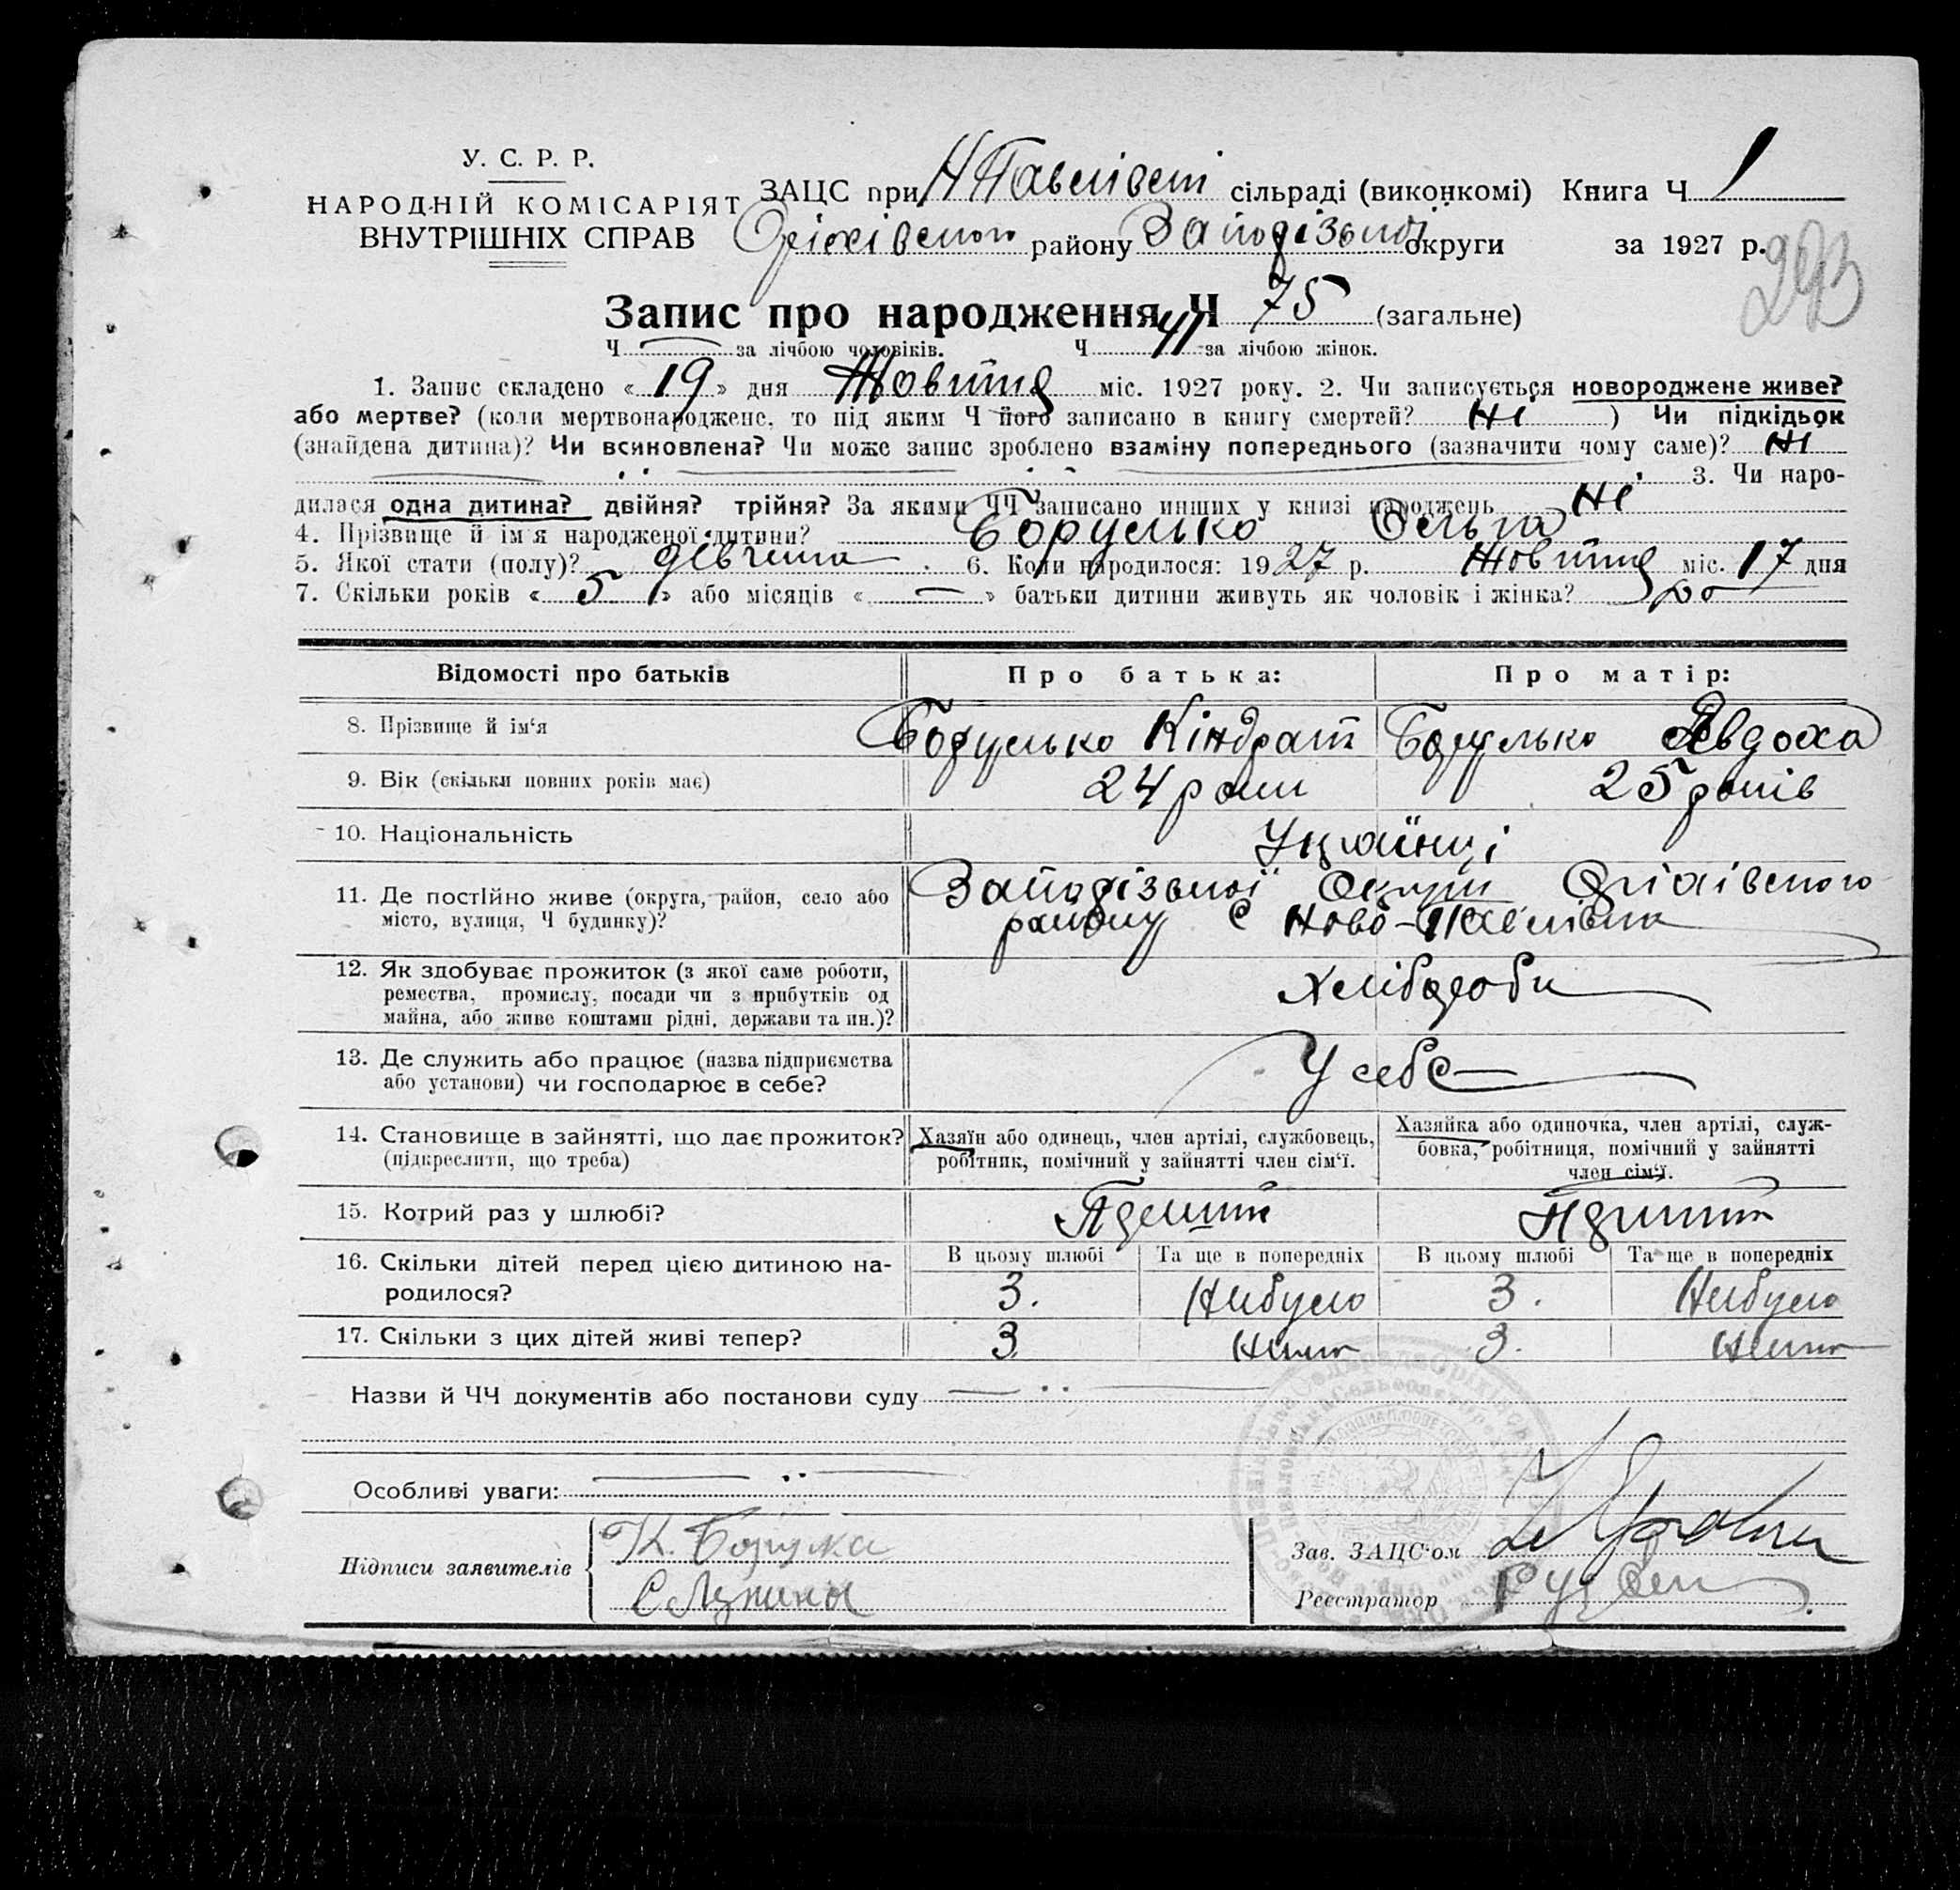 У. С. Р. Р.
НАРОДНІЙ КОМІСАРІЯТ
ВНУТРІШНІХ СПРАВ
ЗАЦС при Н Павлівсті сільраді (виконкомі) Книга Ч 1
Оріхівського району Запорізької округи за 1927 р.
293
Запис про народження Ч 75 (загальне)
Ч — за лічбою чоловіків. Ч 41 за лічбою жінок.
1. Запис складено «19» дня Жовтня міс. 1927 року. 2. Чи записується новороджене живе?
або мертве? (коли мертвонароджене, то під яким Ч його записано в книгу смертей? Ні ) Чи підкідьок
(знайдена дитина)? Чи всиновлена? Чи може запис зроблено взаміну попереднього (зазначити чому саме)? Ні
3. Чи наро-
дилася одна дитина? двійня? трійня? За якими ЧЧ записано инших у книзі народжень Ні
4. Прізвище й ім'я народженої дитини? Борулько Ольга
5. Якої стати (полу)? дівчина 6. Коли народилося: 1927 р. Жовтня міс. 17 дня
7. Скільки років «5» або місяців «—» батьки дитини живуть як чоловік і жінка?
Відомості про батьків Про батька: Про матір:
8. Прізвище й ім'я Борулько Кіндрат Борулько Явдоха
9. Вік (скільки повних років має) 24 роки 25 років
10. Національність Українці
11. Де постійно живе (округа, район, село або Запорізької Округи Оріхівського
місто, вулиця, Ч будинку)? району с Ново-Павлівка
12. Як здобуває прожиток (з якої саме роботи,
ремества, промислу, посади чи з прибутків од Хлібороби
майна, або живе коштами рідні, держави та ин.)?
13. Де служить або працює (назва підприємства У себе
або установи) чи господарює в себе?
14. Становище в зайнятті, що дає прожиток? Хазяїн або одинець, член артілі, службовець, Хазяйка або одиночка, член артілі, служ-
(підкреслити, що треба) робітник, помічний у зайнятті член сім'ї. бовка, робітниця, помічний у зайнятті
член сім'ї.
15. Котрий раз у шлюбі?
16. Скільки дітей перед цією дитиною на- В цьому шлюбі Та ще в попередніх В цьому шлюбі Та ще в попередніх
родилося? 3. Небуло 3. Небуло
17. Скільки з цих дітей живі тепер? 3. Нема 3. Нема
Назви й ЧЧ документів або постанови суду
Особливі уваги:
Підписи заявителів К. Борулка
Зав. ЗАЦС'ом
Реєстратор